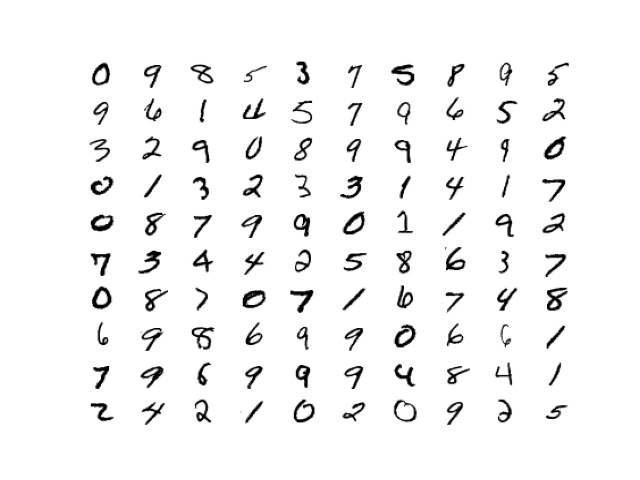 0 9 8 5 3 7 5 8 9 5
9 6 1 4 5 7 9 6 5 2
3 2 9 0 8 9 9 4 9 0
0 1 3 2 3 3 1 4 1 7
0 8 7 9 9 0 1 1 9 2
7 3 4 4 2 5 8 6 3 7
0 8 7 0 7 1 6 7 4 8
6 9 8 6 9 9 0 6 6 1
7 9 6 9 9 9 4 8 4 1
2 4 2 1 0 2 0 9 2 5